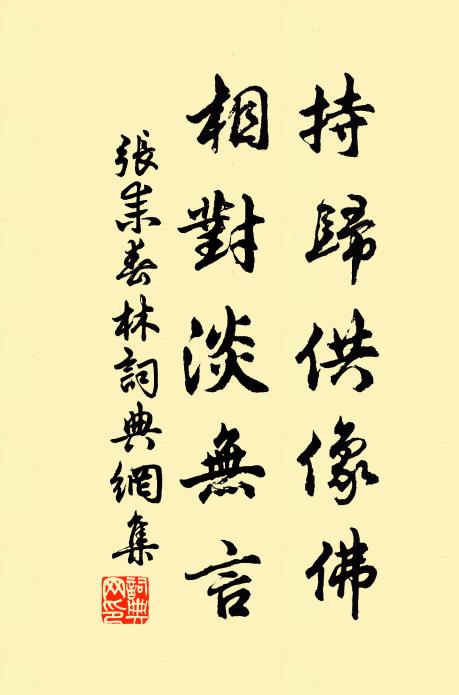 持歸供像佛
相對淡無言
張耒春林詞典網集
詞典網印